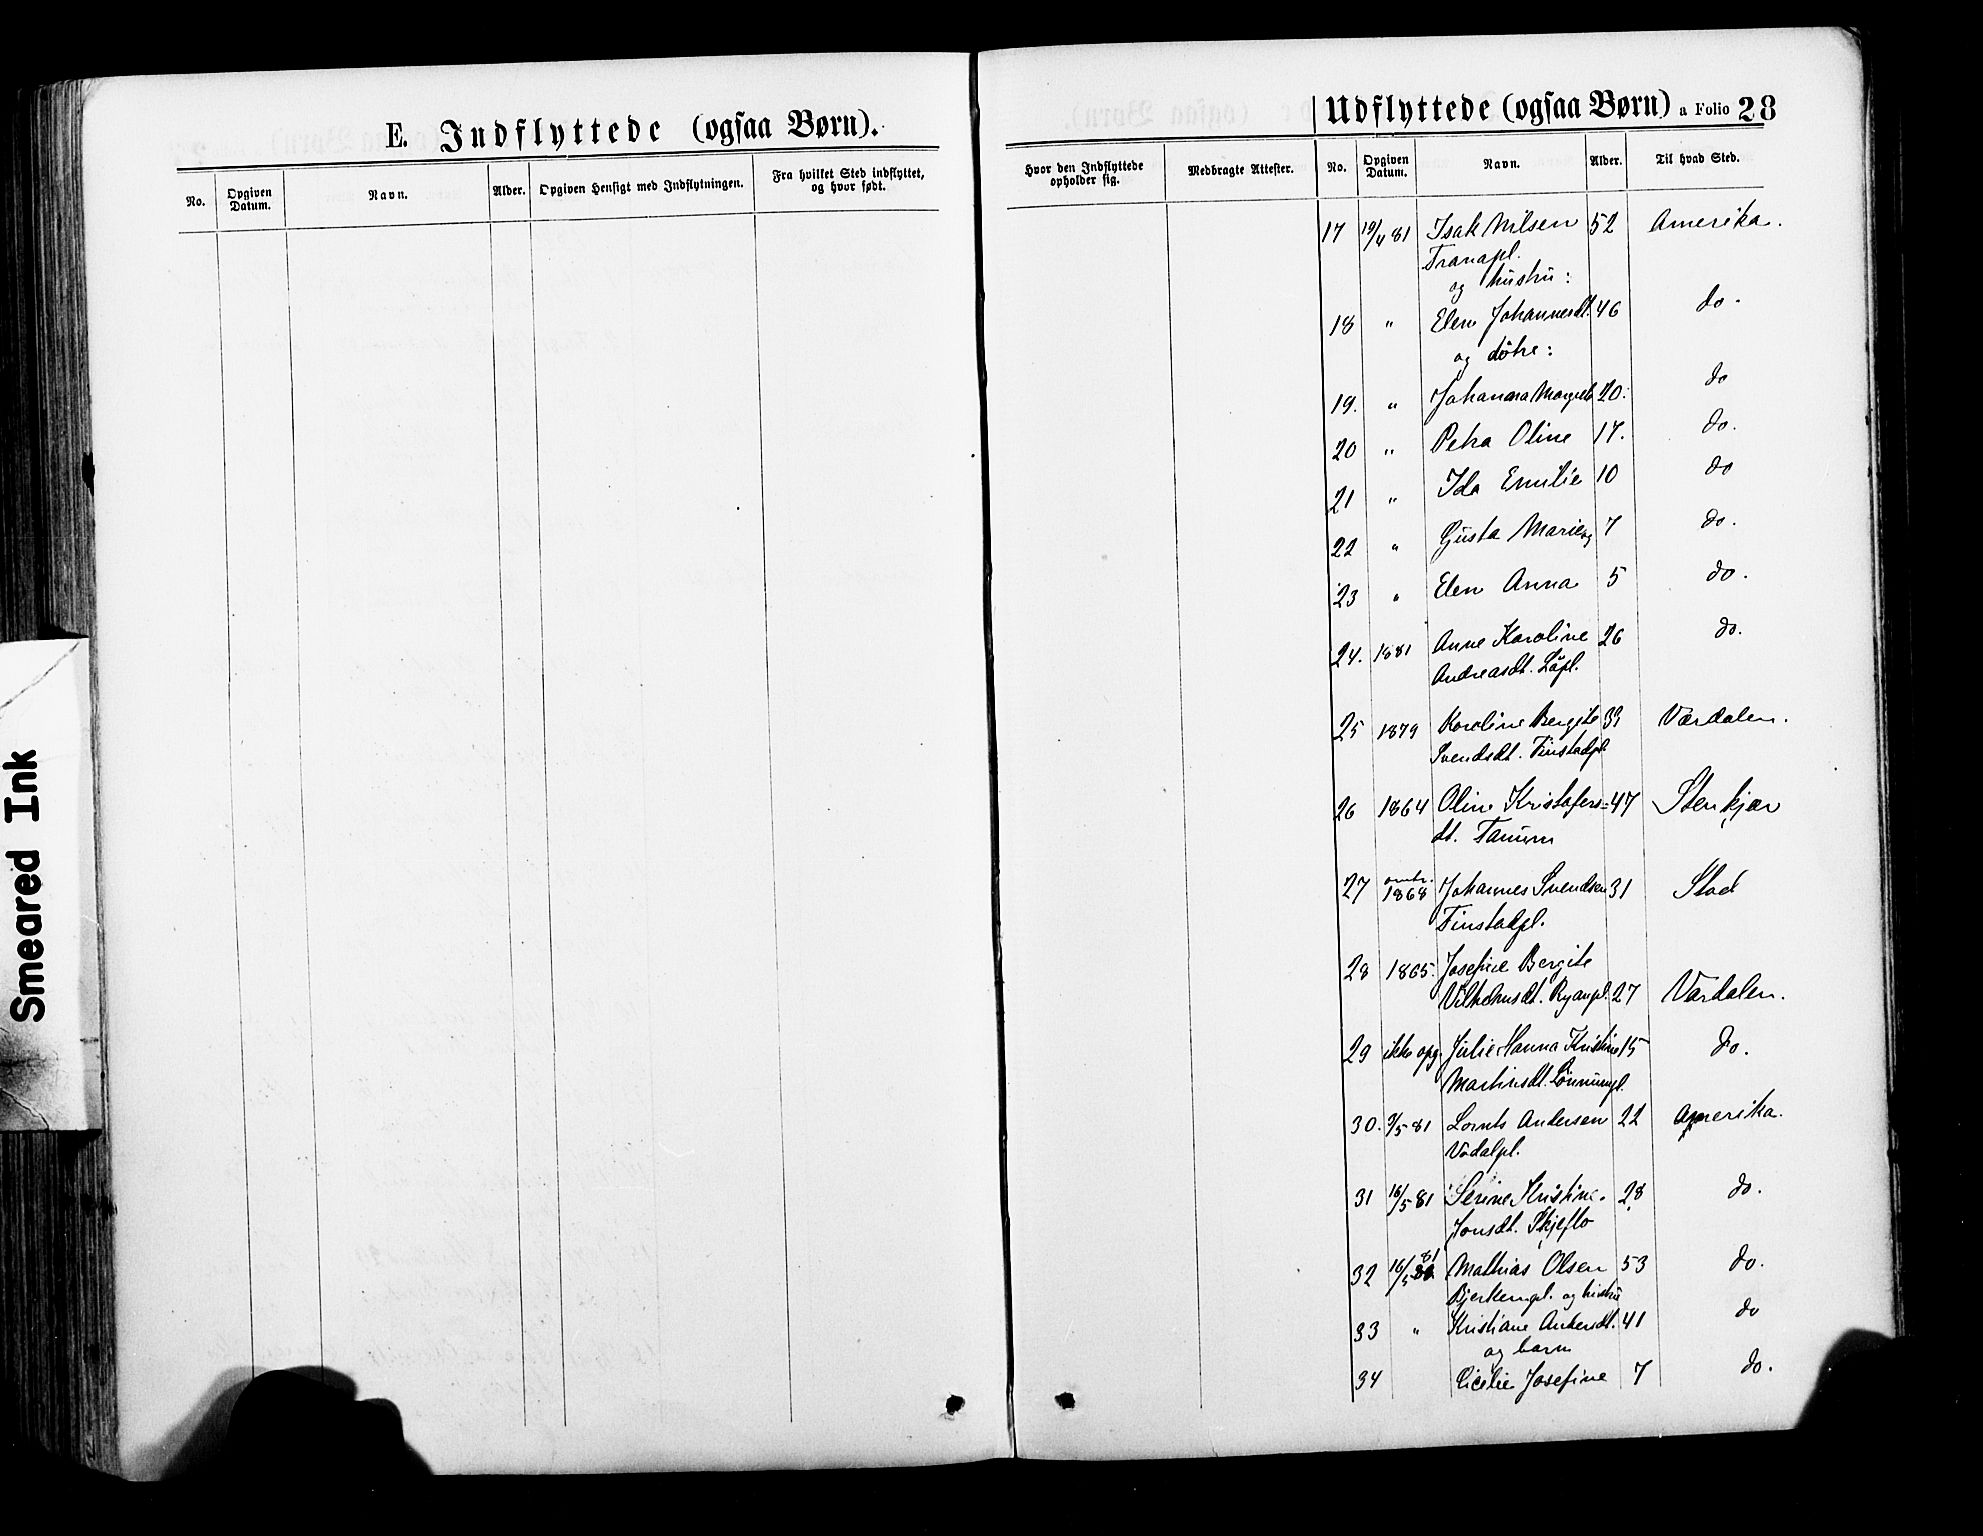 E. Indflyttede (ogsaa Børn).
No. Opgiven Datum. Navn. Alder. Opgiven Hensigt med Indflytningen. Fra hvilket Sted indflyttet, og hvor født.
Udflyttede (ogsaa Børn) a Folio 28
Hvor den Indflyttede opholder sig. Medbragte Attester. No. Opgiven Datum. Navn. Alder. Til hvad Sted.
17 19/4 81 Isak Nilsen 52 Amerika.
Tranapl.
og hustru:
18 " Elen Johannesdt. 46 do.
og døtre:
19. " Johanna Margrete 20. do
20 " Petra Oline 17. do.
21 " Ida Emilie 10 do
22 " Gusta Marie og 7 do.
23 " Elen Anna 5 do.
24. 1881 Anne Karoline 26 do.
Andreasdt.
25 1879 Karoline Bergite 39 Værdalen.
Svendsdt. Finstadpl.
26 1864 Oline Kristofers= 47 Stenkjær
dt. Fanum
27 omtr. 1868 Johannes Svendsen 31 Stod
Finstadpl.
28 1865. Josefine Bergite
Vilhelmsdt. Ryanpl. 27 Værdalen.
29 ikke opg. Julie Hanna Kristine 15 do.
Martinsdt.
30. 9/5 81 Lornts Andersen 22 Amerika.
Vådalpl.
31 16/5 81 Serine Kristine 28 do.
Jonsdt. Skjeflo
32 16/5 81 Mathias Olsen 53 do.
Bjerkempl. og hustru
33 " Kristiane Andersdt. 41 do
og barn
34 Cicelie Josefine 7 do.
Smeared Ink